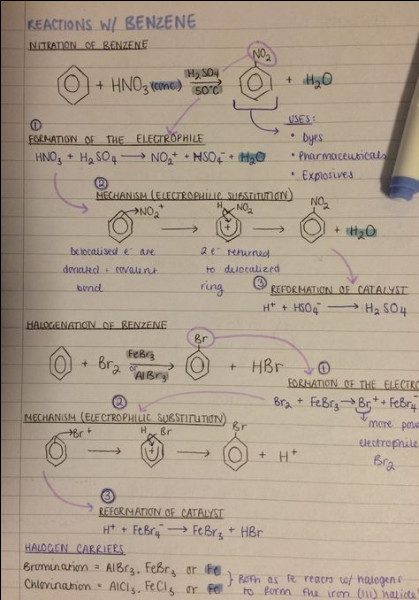 REACTIONS W/ BENZENE
NITRATION OF BENZENE
NO₂
+ HNO₃ (conc.) H₂SO₄ 50°C + H₂O
USES:
• Dyes
• Pharmaceuticals
• Explosives
①
FORMATION OF THE ELECTROPHILE
HNO₃ + H₂SO₄ → NO₂⁺ + HSO₄⁻ + H₂O
②
MECHANISM (ELECTROPHILIC SUBSTITUTION)
NO₂⁺ → H NO₂ + → NO₂ + H₂O
Delocalised e⁻ are
donated = covalent
bond
2e⁻ returned
to delocalized
ring
③ REFORMATION OF CATALYST
H⁺ + HSO₄⁻ → H₂SO₄
HALOGENATION OF BENZENE
Br
+ Br₂ FeBr₃ or AlBr₃ → + HBr
①
FORMATION OF THE ELECTRO
Br₂ + FeBr₃ → Br⁺ + FeBr₄⁻
more pow
electrophile
Br₂
②
MECHANISM (ELECTROPHILIC SUBSTITUTION)
Br⁺ → H Br + → Br + H⁺
③
REFORMATION OF CATALYST
H⁺ + FeBr₄⁻ → FeBr₃ + HBr
HALOGEN CARRIERS
Bromination = AlBr₃, FeBr₃ or Fe
Chlorination = AlCl₃, FeCl₃ or Fe
Both as Fe reacts w/ halogens
to form the iron (III) halide